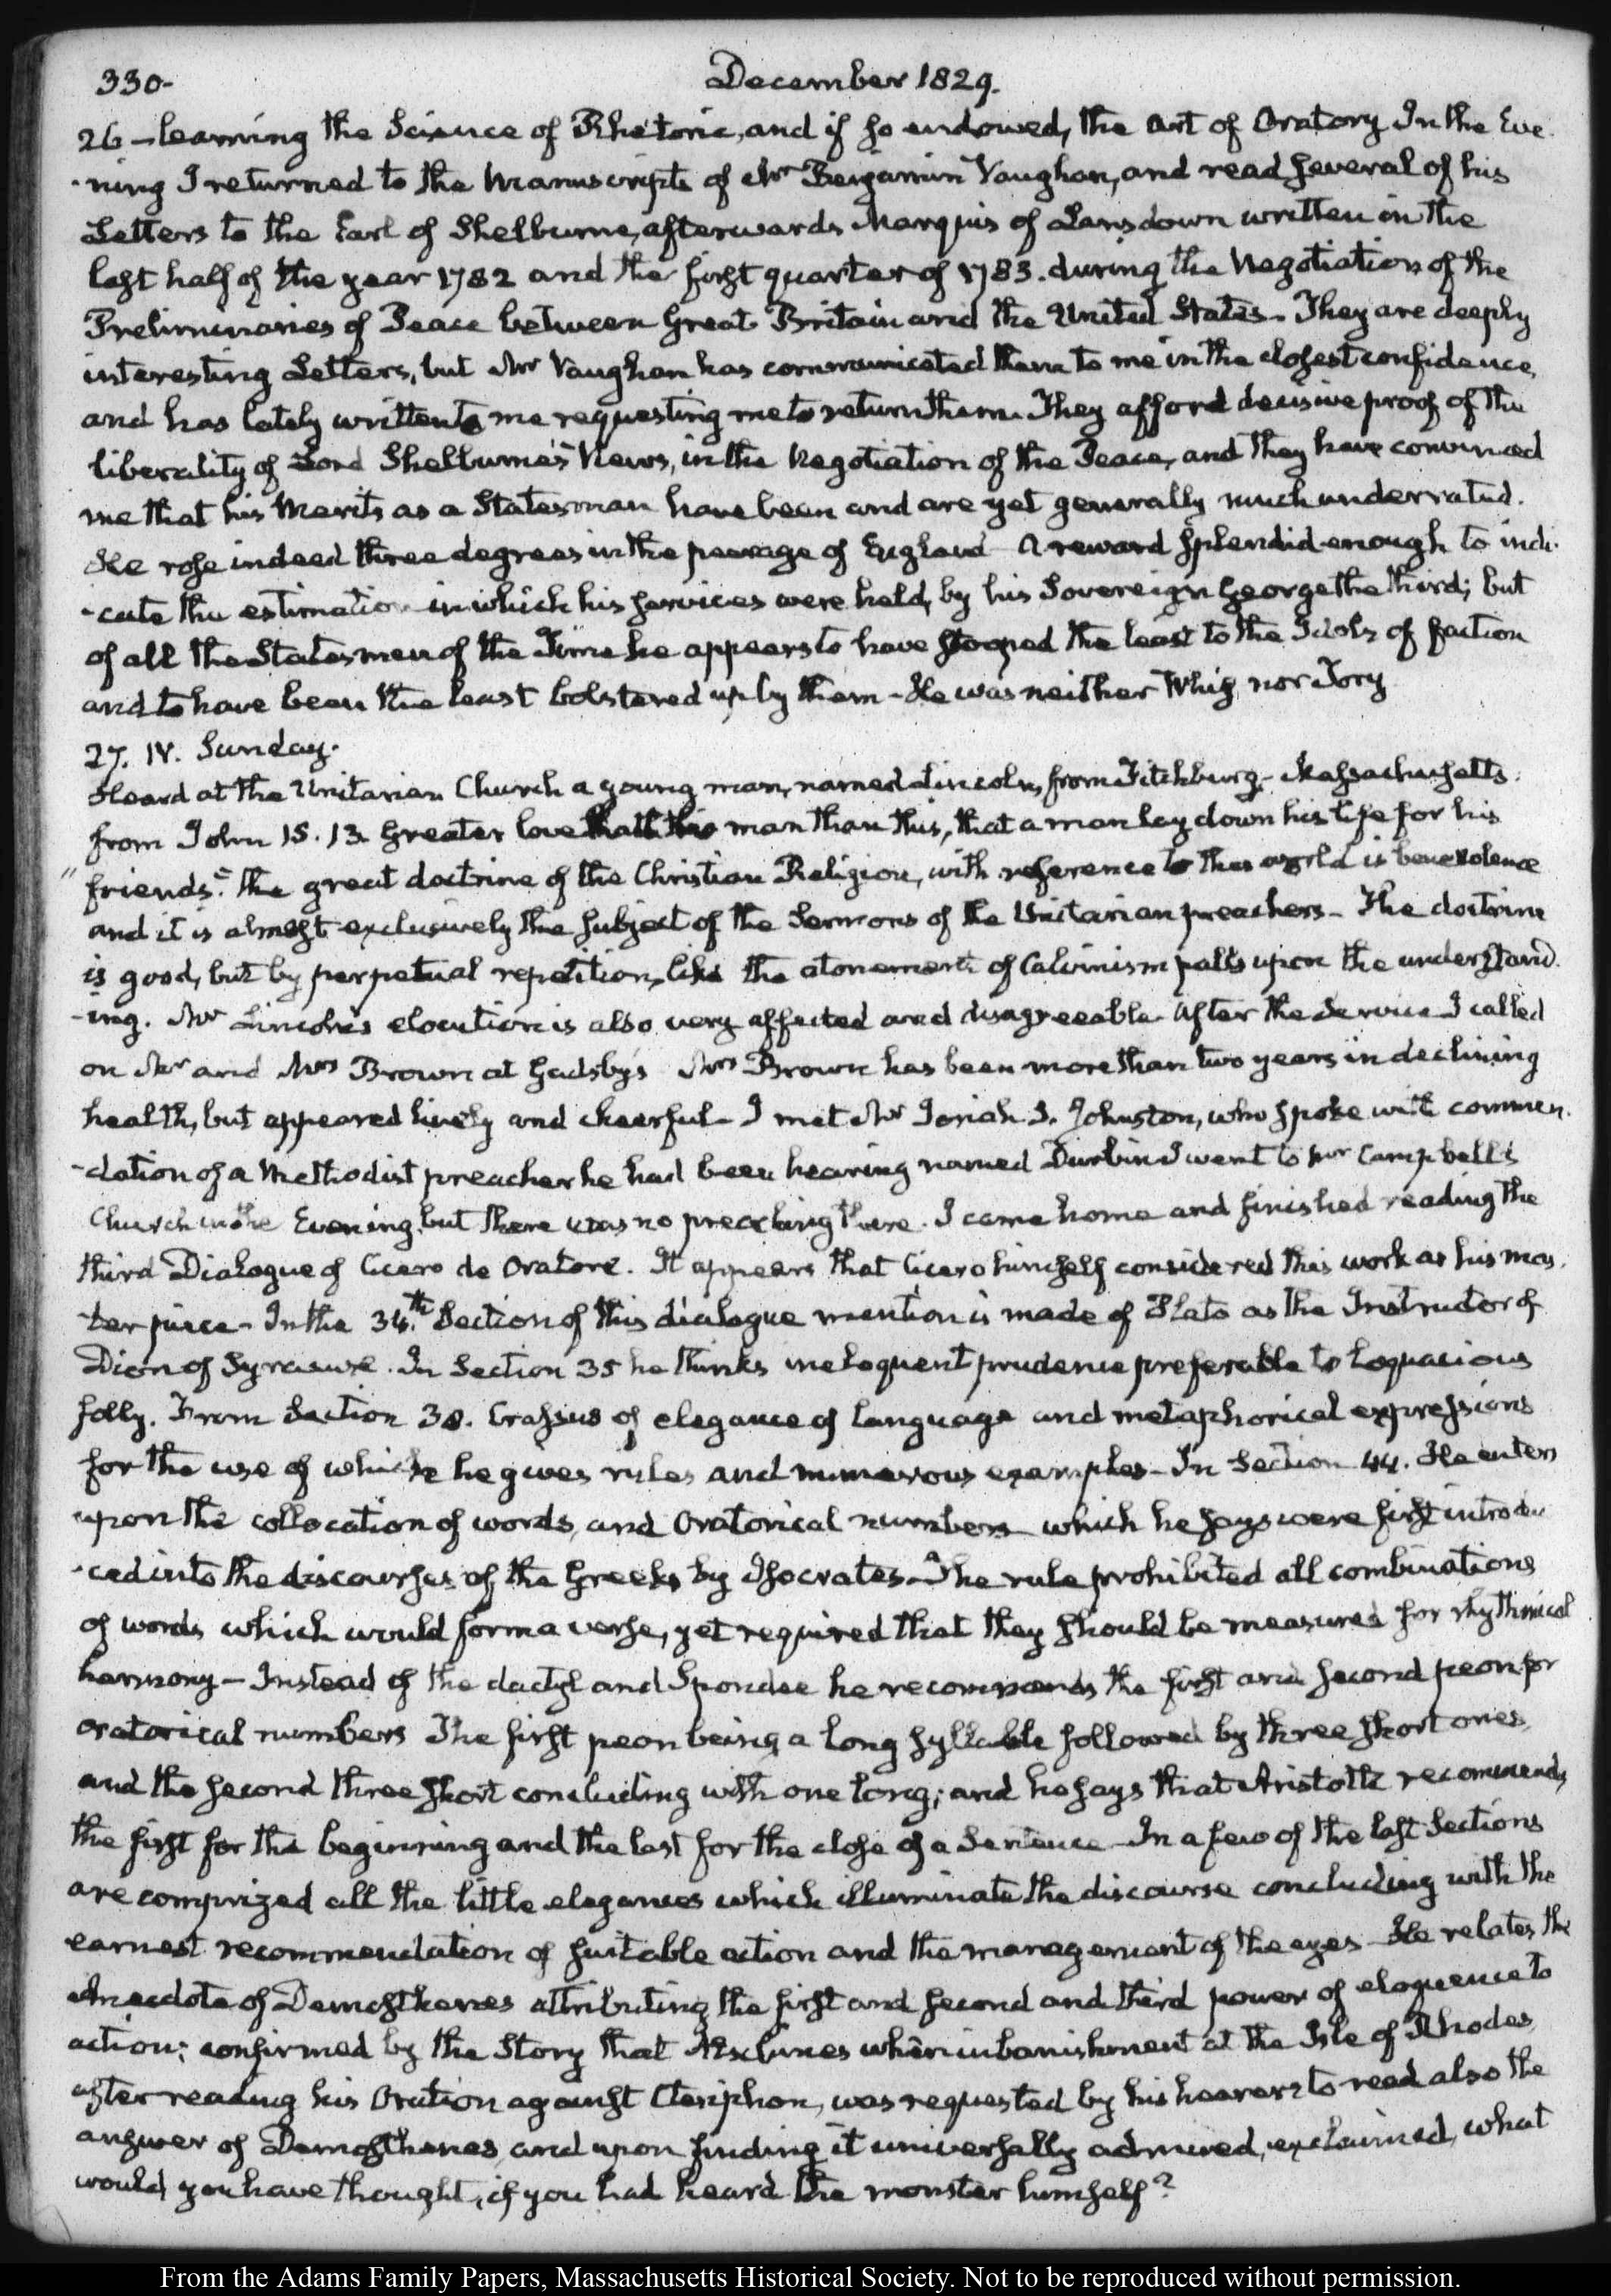 330-
December 1829.
26 - learning the Science of Rhetoric, and if so endowed, the art of Oratory In the Eve
-ning I returned to the Manuscripts of Mr Benjamin Vaughan, and read several of his
Letters to the Earl of Shelburne, afterwards Marquis of Lansdown written in the
last half of the year 1782 and the first quarter of 1783. during the Negotiation of the
Preliminaries of Peace between Great Britain and the United States - They are deeply
interesting Letters, but Mr Vaughan has communicated them to me in the closest confidence,
and has lately written to me requesting me to return them. They afford decisive proof of the
liberality of Lord Shelburne's Views, in the Negotiation of the Peace, and they have convinced
me that his Merits as a Statesman have been and are yet generally much underrated.
He rose indeed three degrees in the peerage of England - A reward splendid enough to indi-
-cate the estimation in which his services were held, by his Sovereign George the third; but
of all the Statesmen of the Time he appears to have stooped the least to the Idols of faction
and to have been the least bolstered up by them - He was neither Whig nor Tory
27. IV. Sunday.
Heard at the Unitarian Church a young man, named Lincoln, from Fitchburg - Massachusetts.
from John 15. 13. Greater love hath no man than this, that a man lay down his life for his
" friends". The great doctrine of the Christian Religion, with reference to this world is benevolence
and it is almost exclusively the subject of the Sermons of the Unitarian preachers - The doctrine
is good, but by perpetual repetition, like the atonement of Calvinism palls upon the understand
-ing. Mr Lincoln's elocution is also very affected and disagreeable. After the Service I called
on Mr and Mrs Brown at Gadsby's Mrs Brown has been more than two years in declining
health, but appeared lively and cheerful - I met Mr Josiah S. Johnston, who spoke with commen.
-dation of a Methodist preacher he had been hearing named Durbin I went to Mr Campbell's
Church in the Evening, but there was no preaching there. I came home and finished reading the
third Dialogue of Cicero de Oratore. It appears that Cicero himself considered this work as his mas.
-ter piece - In the 34.th Section of this dialogue mention is made of Plato as the Instructor of
Dion of Syracuse. In Section 35 he thinks ineloquent prudence preferable to loquacious
folly. From Section 38. Crassus of elegance of language and metaphorical expressions
for the use of which he gives rules and numerous examples - In Section 44. He enters
upon the collocation of words, and Oratorical numbers which he says were first introdu
-ced into the discourses of the Greeks by Isocrates - The rule prohibited all combinations
of words which would form a verse, yet required that they should be measured for rhythmical
harmony - Instead of the dactyl and Spondee he recommends the first and second peon for
oratorical numbers The first peon being a long syllable followed by three short ones,
and the second three short concluding with one long; and he says that Aristotle recommends
the first for the beginning and the last for the close of a Sentence - In a few of the last Sections
are comprized all the little elegances which illuminate the discourse concluding with the
earnest recommendation of suitable action and the management of the eyes - He relates the
Anecdote of Demosthenes attributing the first and second and third power of eloquence to
action; confirmed by the Story that Aeschines when in banishment at the Isle of Rhodes,
after reading his Oration against Ctesiphon, was requested by his hearers to read also the
answer of Demosthenes, and upon finding it universally admired, exclaimed, what
would you have thought, if you had heard the monster himself?
From the Adams Family Papers, Massachusetts Historical Society. Not to be reproduced without permission.